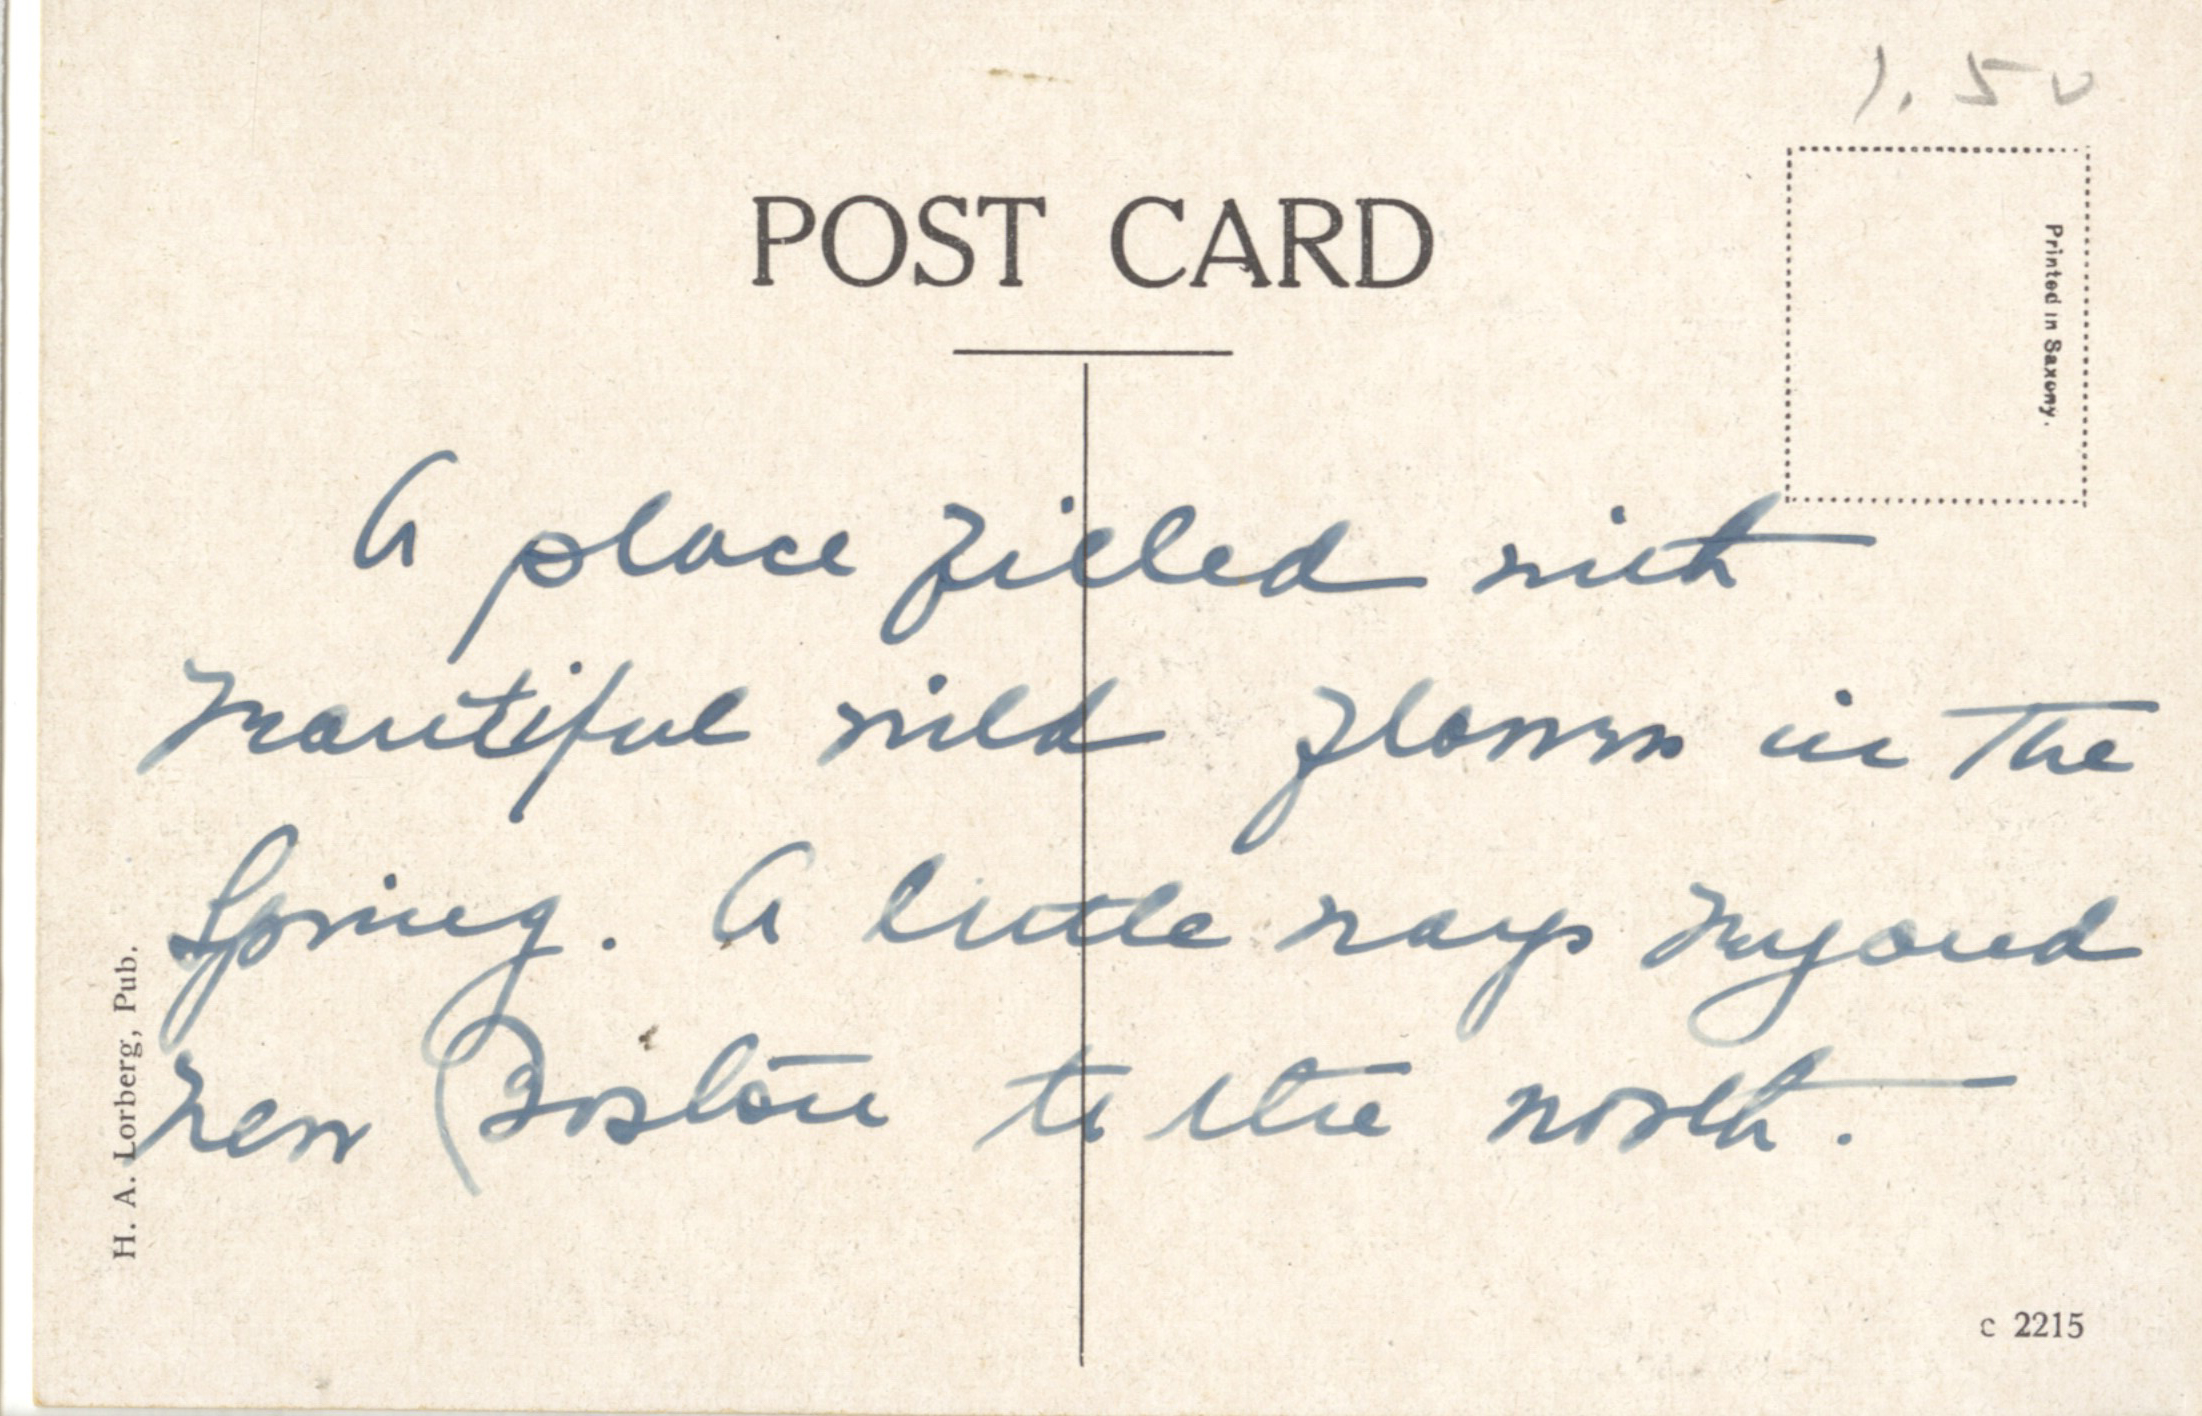 1.50
POST CARD
Printed in Saxony.
A place filled with
beautiful wild flowers in the
Spring. A little ways beyond
New Boston to the north.
H. A. Lorberg, Pub.
c 2215